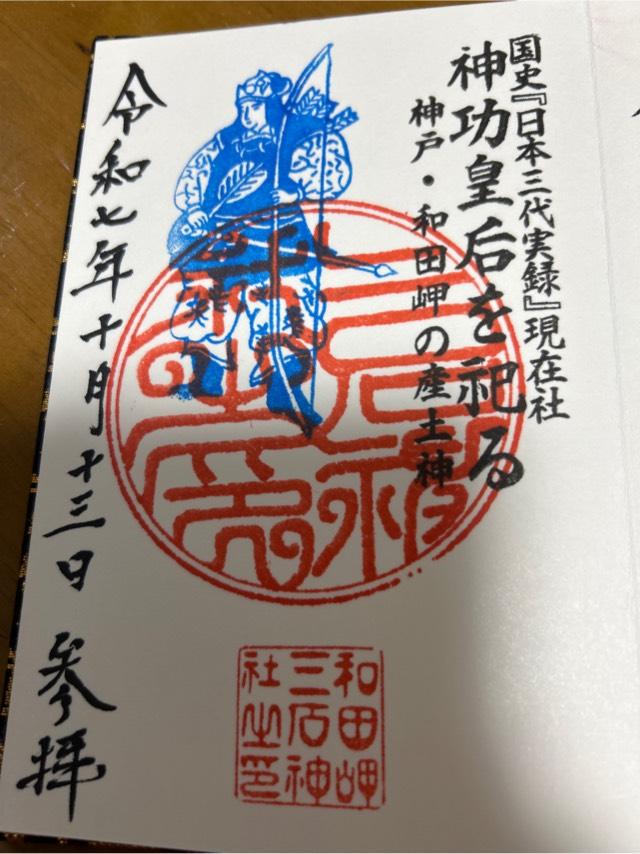 国史『日本三代実録』現在社
神功皇后を祀る
神戸・和田岬の産土神
三石神
令和七年十月十三日 参拝
和田岬
三石神
社之印